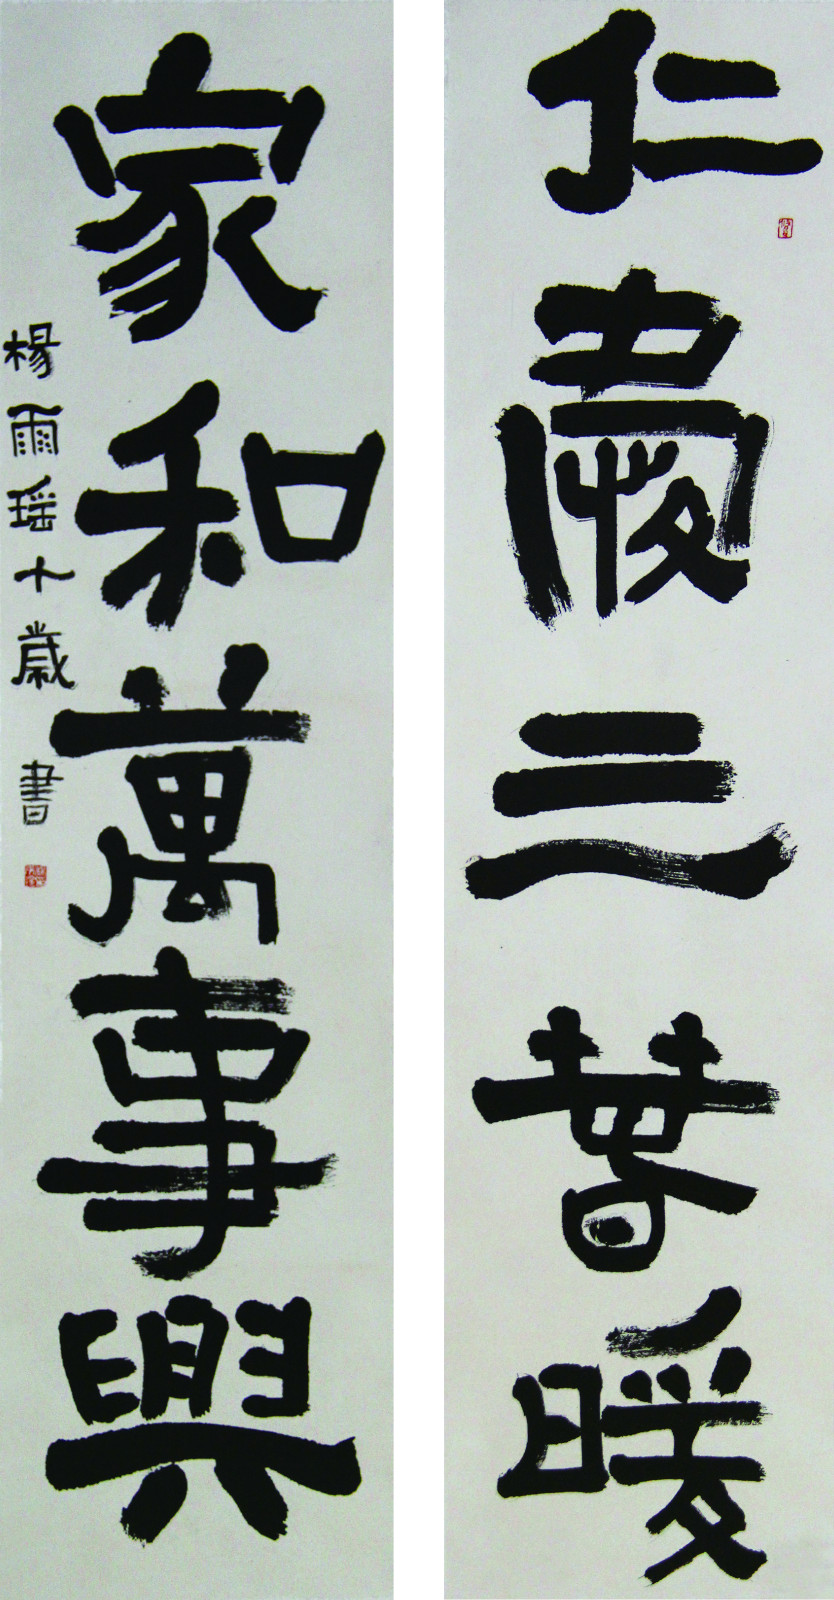 仁愛三春暖
家和萬事興
楊雨瑶十歲書